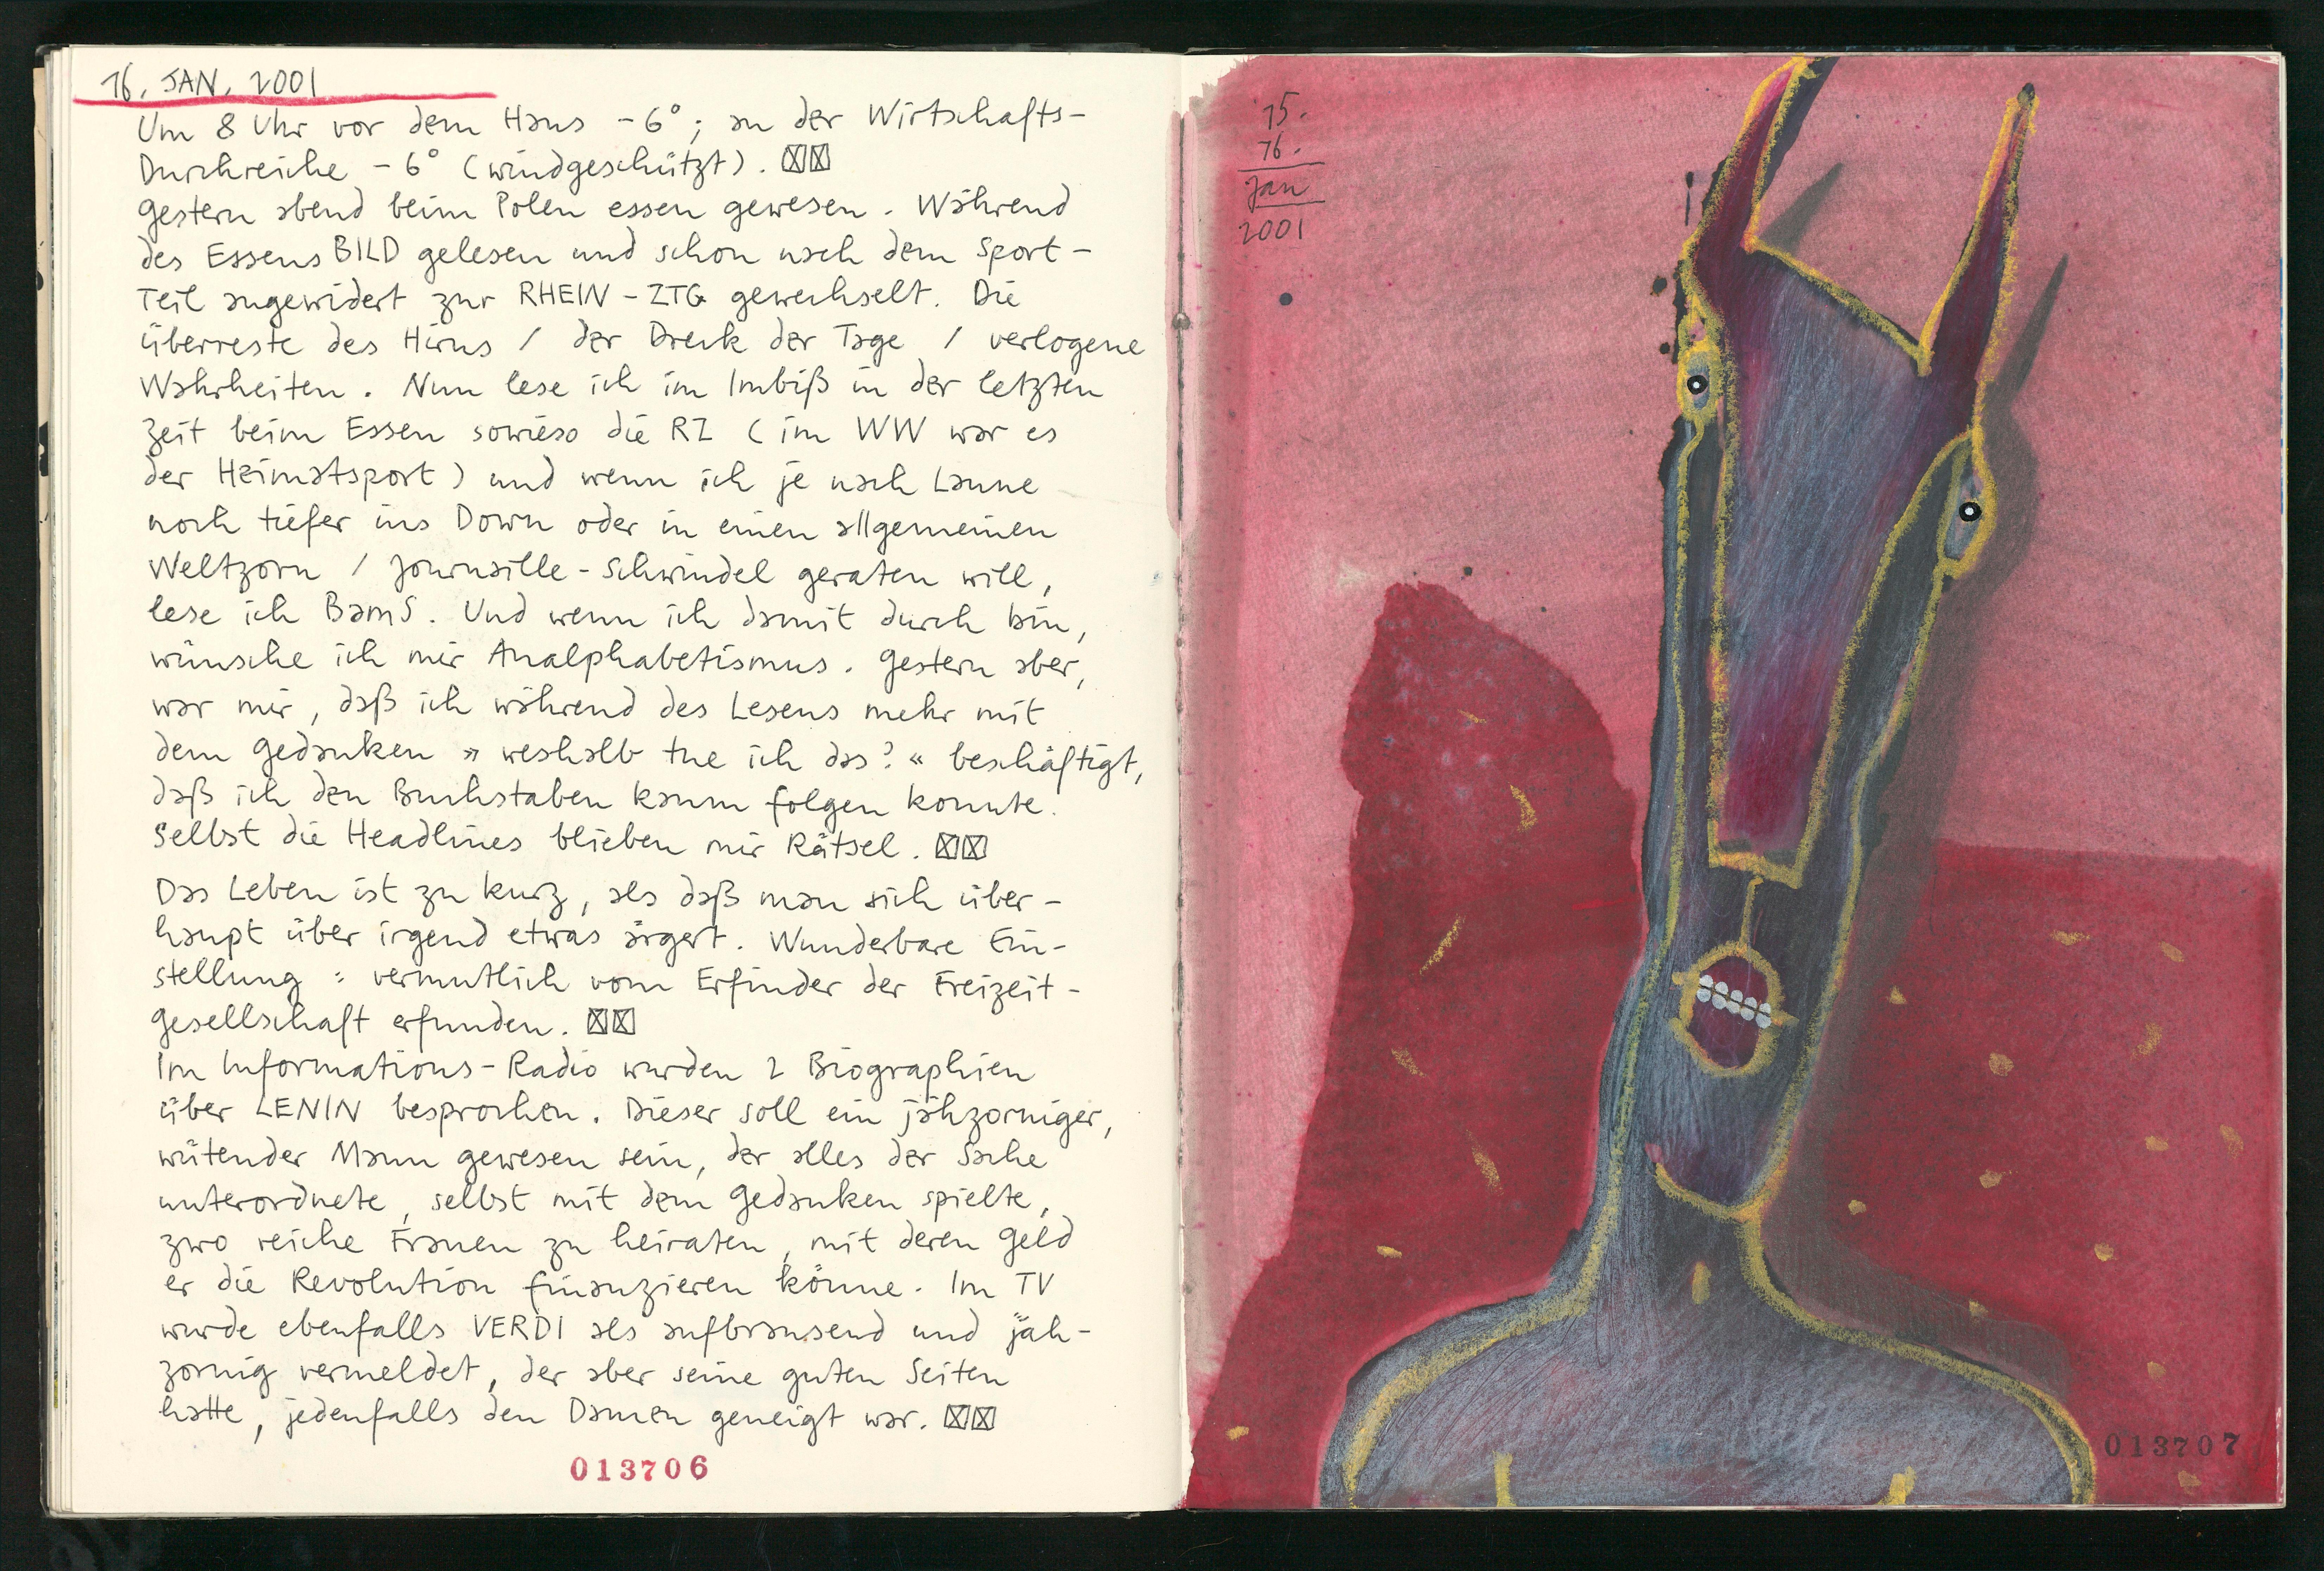 16. JAN. 2001
Um 8 Uhr vor dem Haus -6°; an der Wirtschafts-
Durchreiche -6° (windgeschützt). ☒☒
Gestern abend beim Polen essen gewesen. Während
des Essens BILD gelesen und schon nach dem Sport-
Teil angewidert zur RHEIN-ZTG gewechselt. Die
überreste des Hirns / der Dreck der Tage / verlogene
Wahrheiten. Nun lese ich im Imbiß in der letzten
Zeit beim Essen sowieso die RZ (im WW war es
der Heimatsport) und wenn ich je nach Laune
noch tiefer ins Down oder in einen allgemeinen
Weltzorn / Journaille-Schwindel geraten will,
lese ich BamS. Und wenn ich damit durch bin,
wünsche ich mir Analphabetismus. Gestern aber,
war mir, daß ich während des Lesens mehr mit
dem Gedanken »weshalb tue ich das?« beschäftigt,
daß ich den Buchstaben kaum folgen konnte.
Selbst die Headlines blieben mir Rätsel. ☒☒
Das Leben ist zu kurz, als daß man sich über-
haupt über irgend etwas ärgert. Wunderbare Ein-
stellung: vermutlich vom Erfinder der Freizeit-
gesellschaft erfunden. ☒☒
Im Informations-Radio wurden 2 Biographien
über LENIN besprochen. Dieser soll ein jähzorniger,
wütender Mann gewesen sein, der alles der Sache
unterordnete, selbst mit dem Gedanken spielte,
zwo reiche Frauen zu heiraten, mit deren Geld
er die Revolution finanzieren könne. Im TV
wurde ebenfalls VERDI als aufbrausend und jäh-
zornig vermeldet, der aber seine guten Seiten
hatte, jedenfalls den Damen geneigt war. ☒☒
013706
15.
16.
Jan
2001
013707